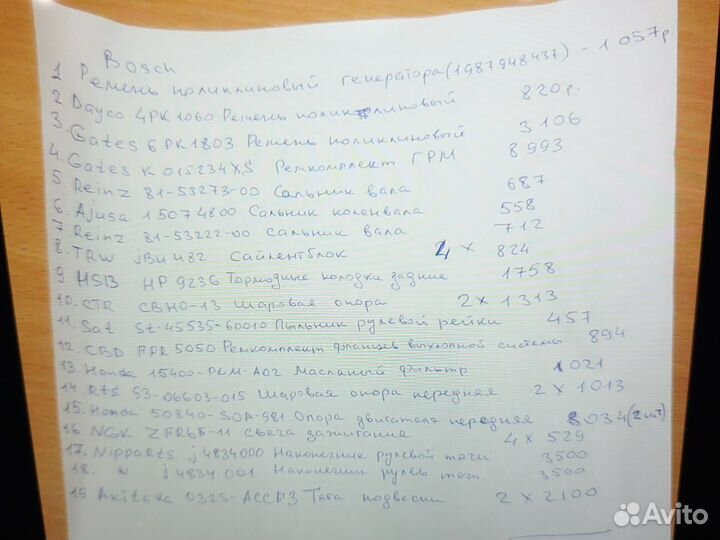 Bosch
1 Ремень поликлиновый генератора (1987948437) - 1 057 р.
2 Dayco 4PK1060 Ремень поликлиновый 820 р.
3. Gates 6PK1803 Ремень поликлиновый 3 106
4. Gates K015234XS Ремкомплект ГРМ 8 993
5. Reinz 81-53273-00 Сальник вала 687
6. Ajusa 15074800 Сальник коленвала 558
7. Reinz 81-53222-00 Сальник вала 712
8. TRW JBU482 Сайлентблок 4 x 824
9. HSB HP 9236 Тормозные колодки задние 1758
10. CTR CBHO-13 Шаровая опора 2 x 1313
11. Sat St-45535-60010 Пыльник рулевой рейки 457
12. CBD FPR 5050 Ремкомплект фланцев выхлопной системы 894.
13. Honda 15400-PLM-A02 Масляный фильтр 1 021
14. RTS 93-06603-015 Шаровая опора передняя 2 x 1013
15. Honda 50840-S0A-981 Опора двигателя передняя 8034 (2шт)
16. NGK ZFR6F-11 свеча зажигания 4 x 529
17. Nipparts j4834000 Наконечник рулевой тяги 3500
18. " j4834001 Наконечник рулев тяги 3500
19 Akitaka 0325-ACCL3 Тяга подвески 2 x 2100
Avito